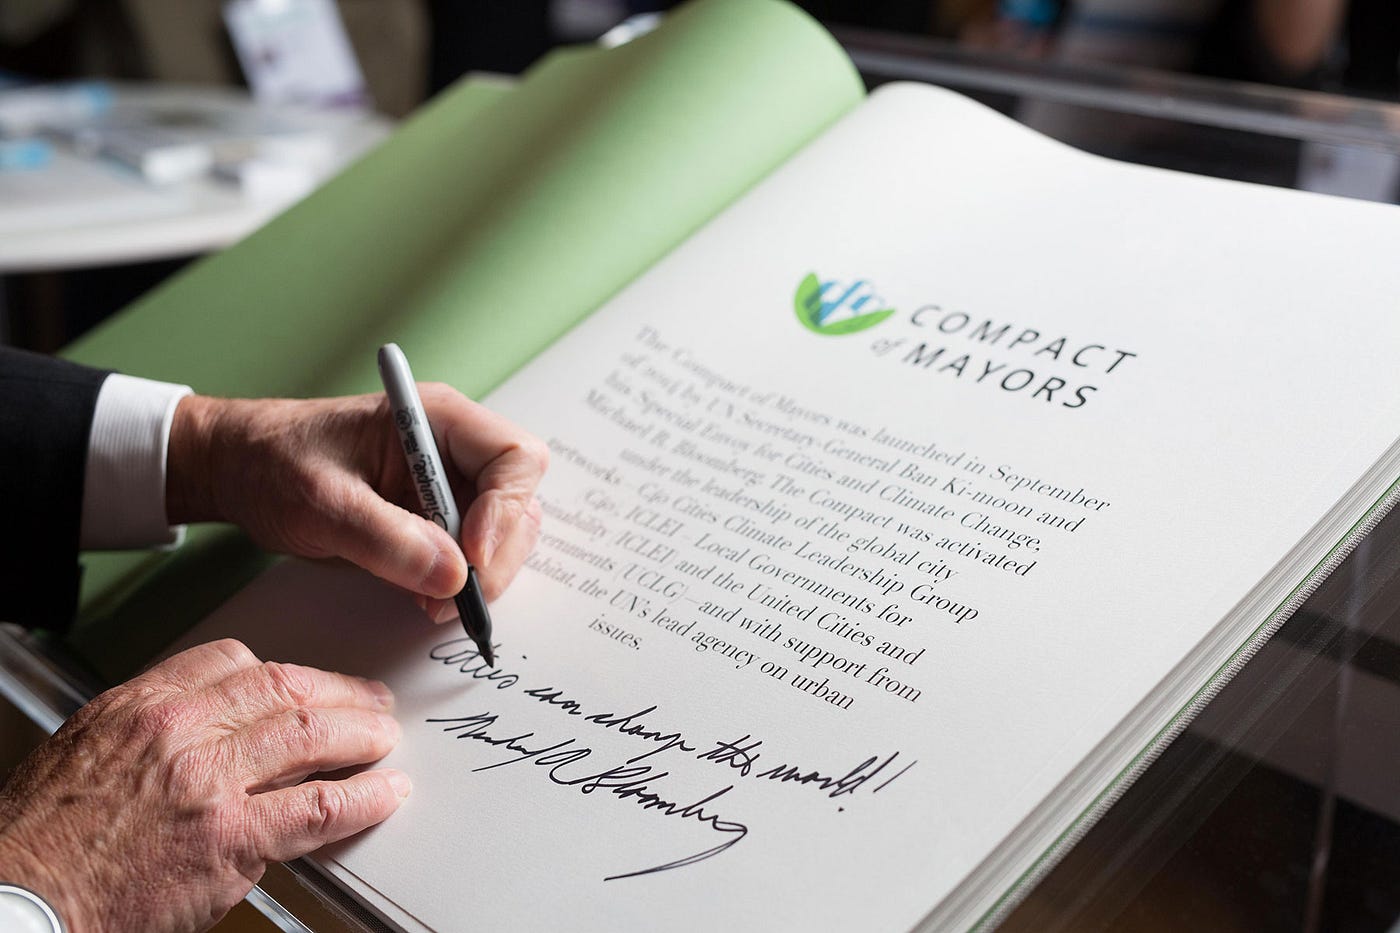 COMPACT
of MAYORS
The Compact of Mayors was launched in September
of 2014 by UN Secretary-General Ban Ki-moon and
his Special Envoy for Cities and Climate Change,
Michael R. Bloomberg. The Compact was activated
under the leadership of the global city
networks – C40 Cities Climate Leadership Group
(C40), ICLEI – Local Governments for
Sustainability (ICLEI) and the United Cities and
Governments (UCLG) –and with support from
Habitat, the UN's lead agency on urban
issues.
Cities can change the world!
Michael R Bloomberg
Sharpie